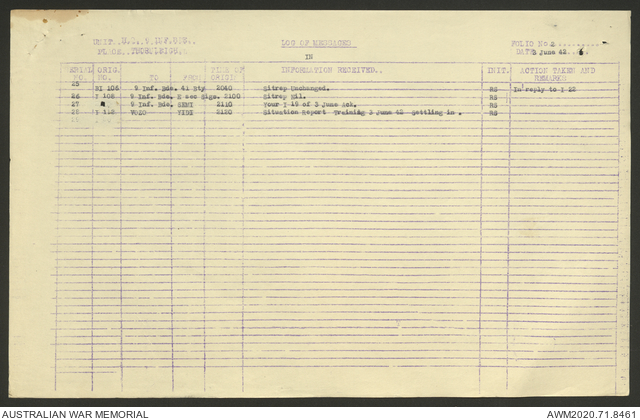 UNIT. H.Q. 9 INF.BDE.
LOG OF MESSAGES
FOLIO No 2
PLACE.
IN
DATE 3 June 42
SERIAL NO. ORIG. NO. TO FROM TIME OF ORIGIN INFORMATION RECEIVED. INIT. ACTION TAKEN AND REMARKS
25 NI 106 9 Inf. Bde. 41 Bty 2040 Sitrep Unchanged. RS In reply to I 22
26 Y 108 9 Inf. Bde. E sec Sigs. 2100 Sitrep Nil. RS
27 9 Inf. Bde. SEMI 2110 Your I-19 of 3 June Ack. RS
28 Y 112 VOZO VIDI 2120 Situation Report Training 3 June 42 Settling in . RS
AUSTRALIAN WAR MEMORIAL
AWM2020.71.8461